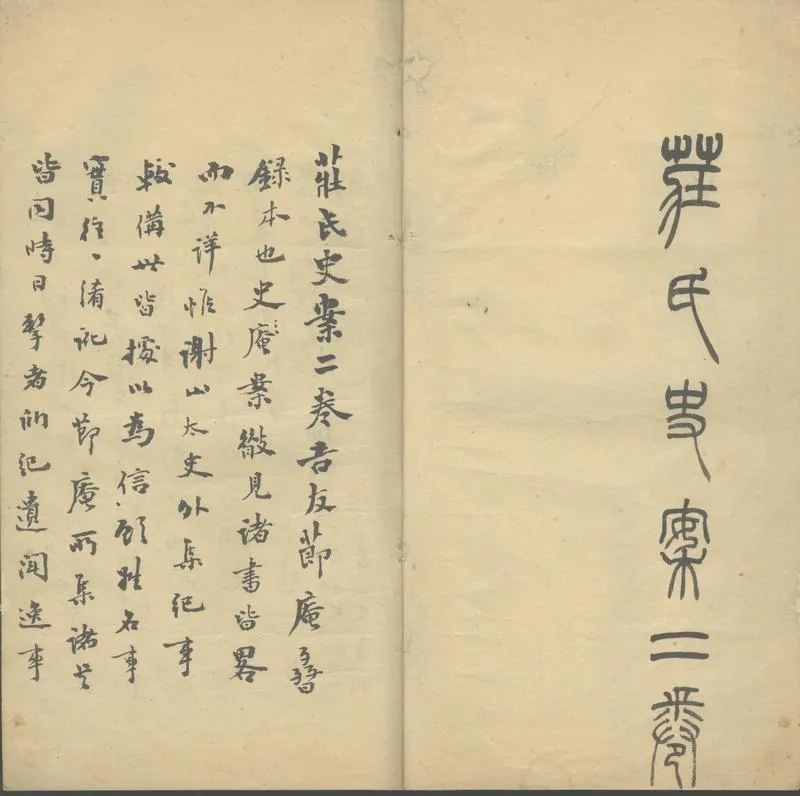 莊氏史案二卷
莊氏史案二卷吾友節庵
錄本也史庵案散見諸書皆畧
而不详惟謝山太史外集紀事
較備世皆據以為信顧姓名事
實往〻淆訛今節庵所集諸
皆同時目擊者所紀遺聞逸事